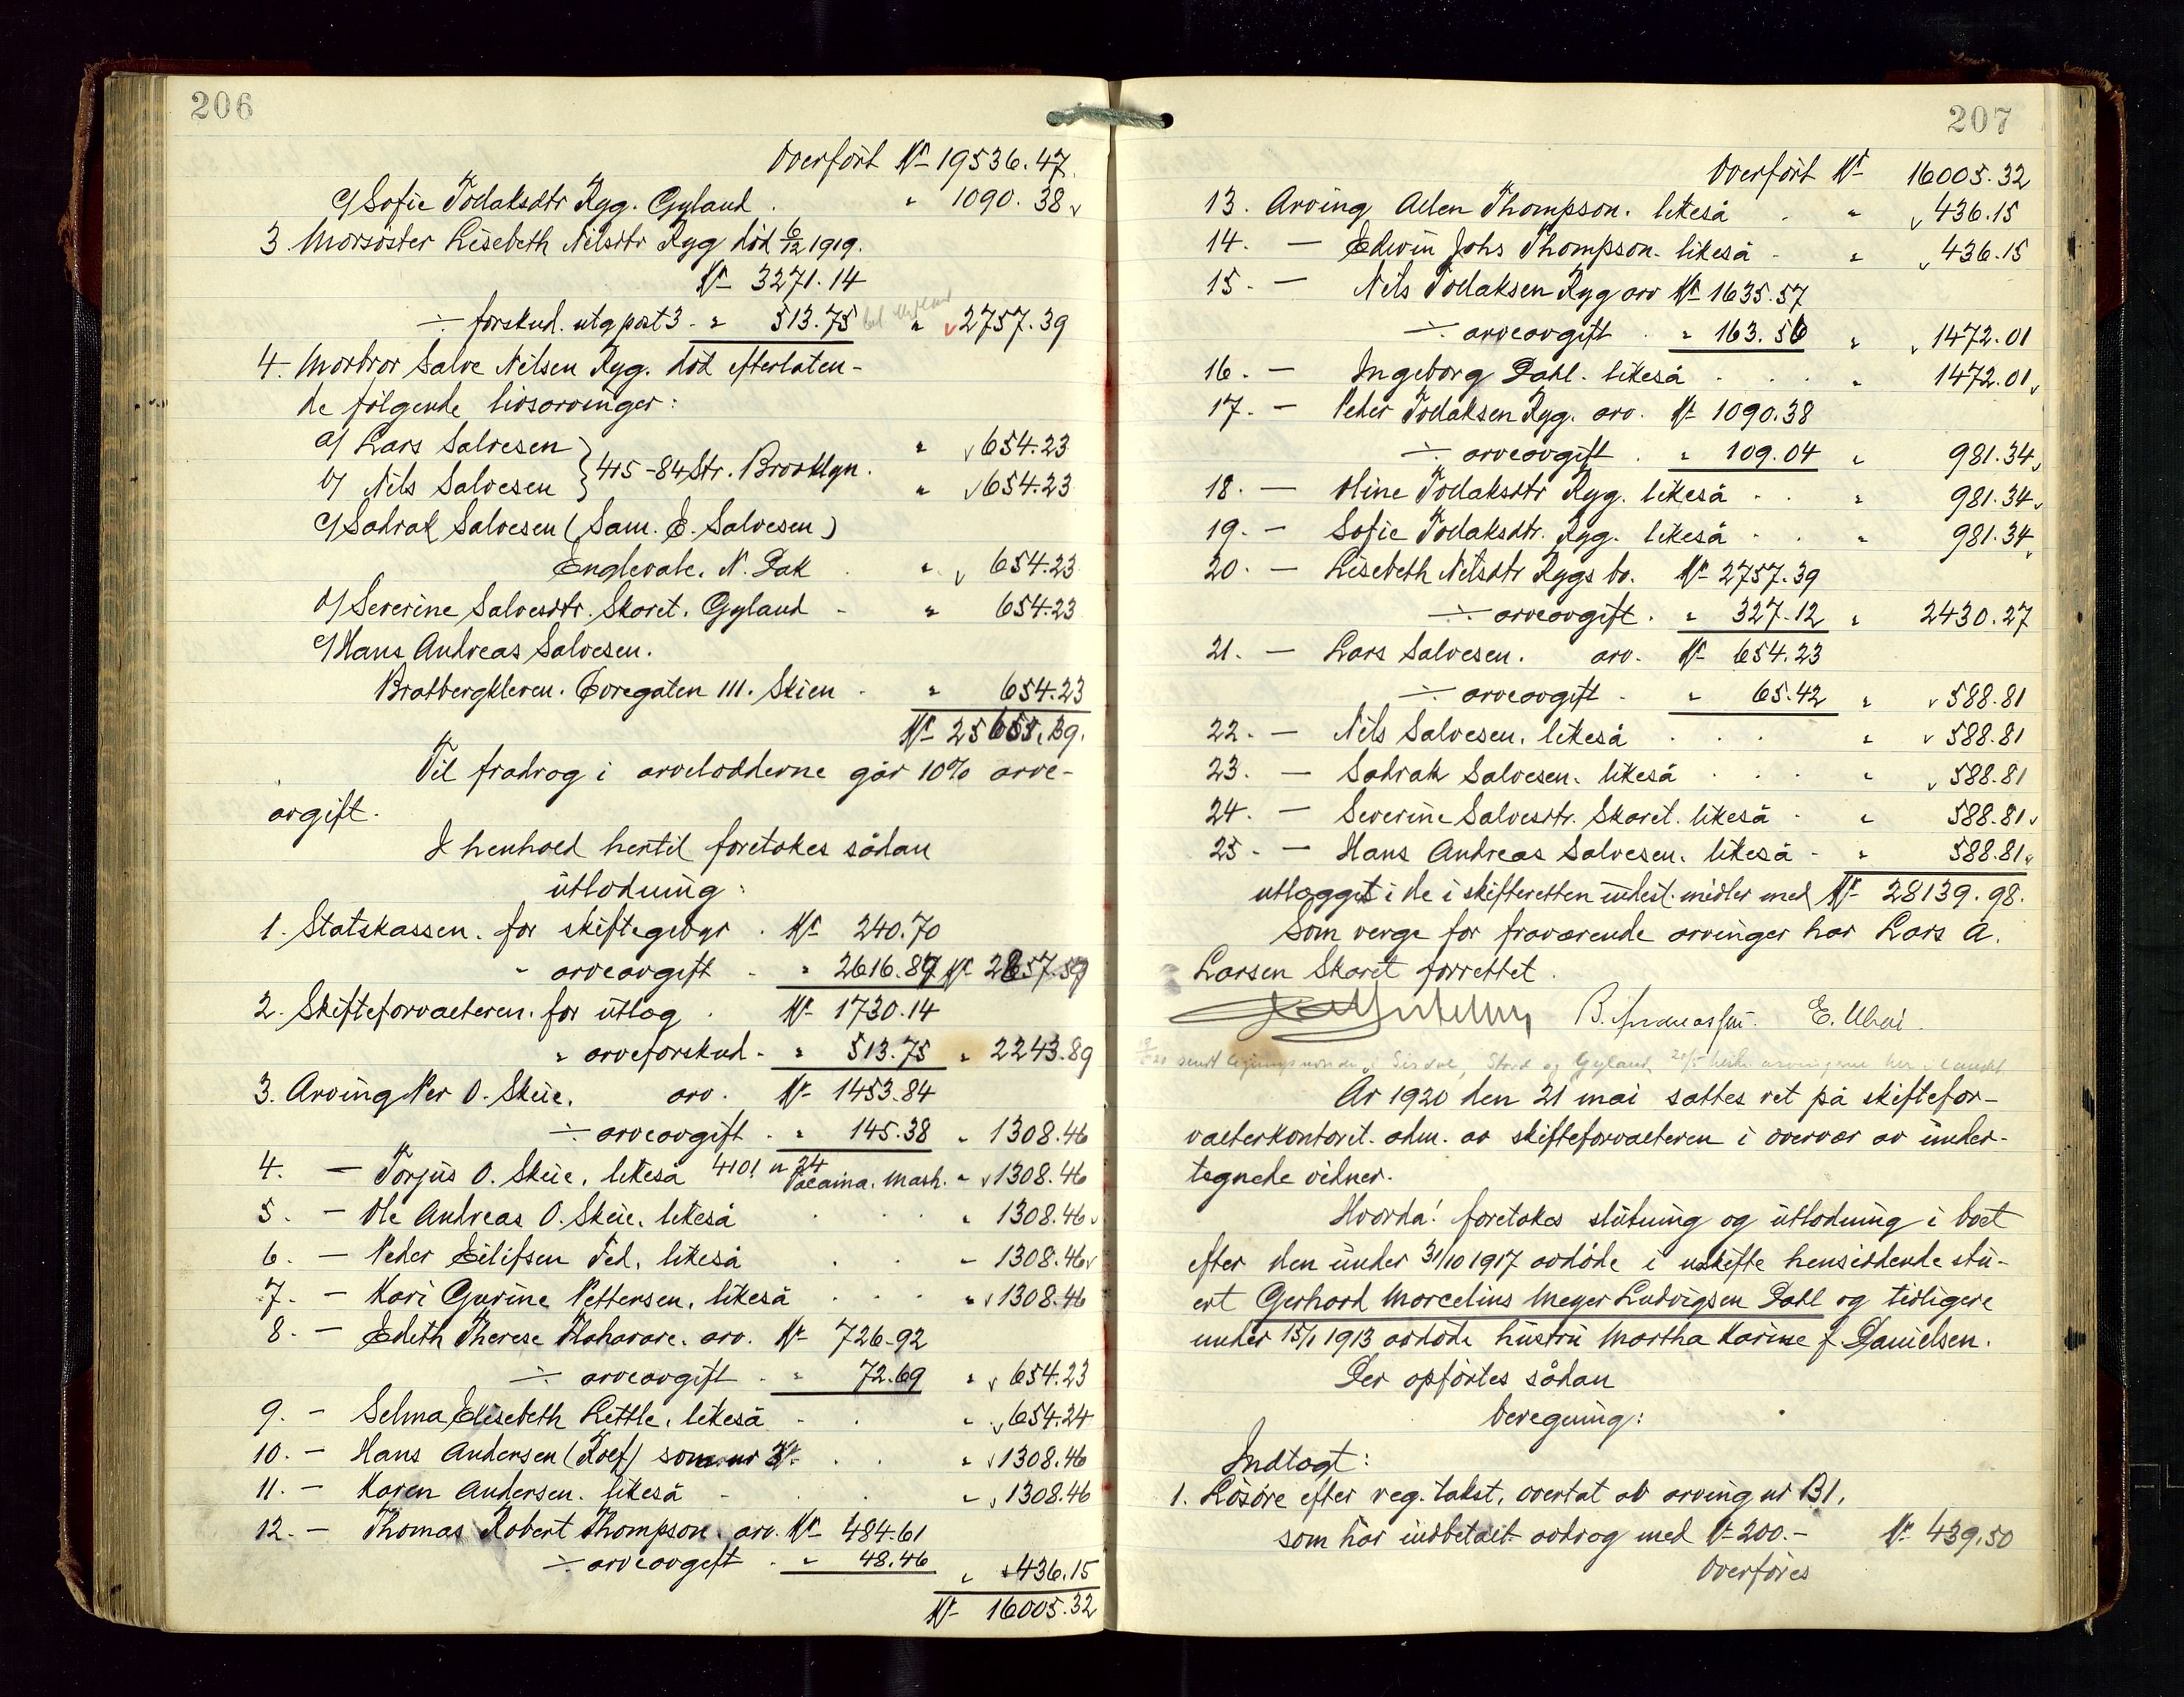 206
Overført Kr 19536.47.
c/ Sofie Todaksdtr Ryg. Gyland . " 1090.38
3. Morsöster Lisebeth Nilsdtr Ryg död 6/12 1919.
Kr 3271.14
÷ forskud. utg post 3 - " 513.75 " 2757.39
4. Morbror Salve Nilsen Ryg. död efterlaten-
de fölgende livsarvinger:
a/ Lars Salvesen " 654.23
} 415-84 Str. Brooklyn.
b/ Nils Salvesen " 654.23
c/ Sadrak Salvesen (Sam. E. Salvesen)
Englevale. N. Dak . " 654.23
d/ Severine Salvesdtr. Skaret. Gyland - " 654.23
e/ Hans Andreas Salvesen.
Bratbergkleven. Övregaten 111. Skien - " 654.23
Kr 25655.39.
Til fradrag i arvelodderne går 10% arve-
avgift.
I henhold hertil foretakes sådan
utlodning:
1. Statskassen. for skiftegebyr . Kr 240.70
" arveavgift - " 2616.89 Kr 2857.59
2. Skifteforvalteren. for utlæg . Kr 1730.14
" arveforskud - " 513.75 " 2243.89
3. Arving Per O. Skeie. arv. Kr 1453.84
÷ arveavgift . " 145.38 " 1308.46
4. — Torjus O. Skeie. likeså 4101 n 24 Tacoma. Wash. " 1308.46
5. — Ole Andreas O. Skeie. likeså . . . " 1308.46
6. — Peder Eilifsen Fed. likeså . . - 1308.46
7. — Kari Gurine Pettersen. likeså . . . " 1308.46
8. — Edith Therese Flaharare. arv. Kr 726.92
÷ arveavgift . " 72.69 " 654.23
9. — Selma Elisebeth Little. likeså - . " 654.24
10. — Hans Andersen (Roef) som nr 3. . . " 1308.46
11. — Karen Andersen. likeså - . . " 1308.46
12. — Thomas Robert Thompson. arv. Kr 484.61
÷ arveavgift . " 48.46 " 436.15
Kr 16005.32
207
Overført Kr 16005.32
13. Arving Allen Thompson. likeså . " 436.15
14. — Edwin Johs Thompson. likeså - " 436.15
15. — Nils Todaksen Ryg arv Kr 1635.57
÷ arveavgift . " 163.56 " 1472.01
16. — Ingeborg Dahl. likeså . . . " 1472.01
17. — Peder Todaksen Ryg. arv. Kr 1090.38
÷ arveavgift . " 109.04 " 981.34
18. — Oline Todaksdtr Ryg. likeså . . " 981.34
19. — Sofie Todaksdtr. Ryg. likeså . . " 981.34
20. — Lisebeth Nilsdtr Rygs bo. Kr 2757.39
÷ arveavgift . " 327.12 " 2430.27
21. — Lars Salvesen. arv. Kr 654.23
÷ arveavgift . " 65.42 " 588.81
22. — Nils Salvesen. likeså . . . " 588.81
23. — Sadrak Salvesen. likeså . . . " 588.81
24. — Severine Salvesdtr. Skaret. likeså - " 588.81
25. — Hans Andreas Salvesen. likeså - " 588.81
utlægget i de i skifteretten indest. midler med Kr 28139.98.
Som verge for fraværende arvinger har Lars A.
Larsen Skaret forrettet.
B. Andreassen. E. Ubøe.
Sirdal, og Gyland
År 1920 den 21 mai sattes ret på skiftefor-
valterkontoret. adm. av skifteforvalteren i overvær av under-
tegnede vidner.
Hvorda! foretokes slutning og utlodning i boet
efter den under 31/10 1917 avdöde i uskifte hensiddende stu-
ert Gerhard Marcelius Meyer Ludvigsen Dahl og tidligere
under 15/1 1913 avdöde hustru Martha Karine f. Danielsen.
Der opførtes sådan
beregning:
Indtægt:
1. Lösöre efter reg. takst. overtat av arving nr B1.
som har indbetalt avdrag med Kr 200.- Kr 439.50
Overføres